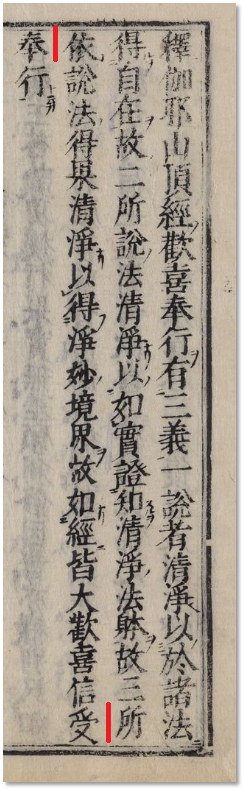 釋伽耶山頂經歡喜奉行有三義一說者清淨以於諸法
得自在故二所說法清淨以如實證知清淨法躰故三所
依說法得果清淨以得淨妙境界故如經皆大歡喜信受
奉行